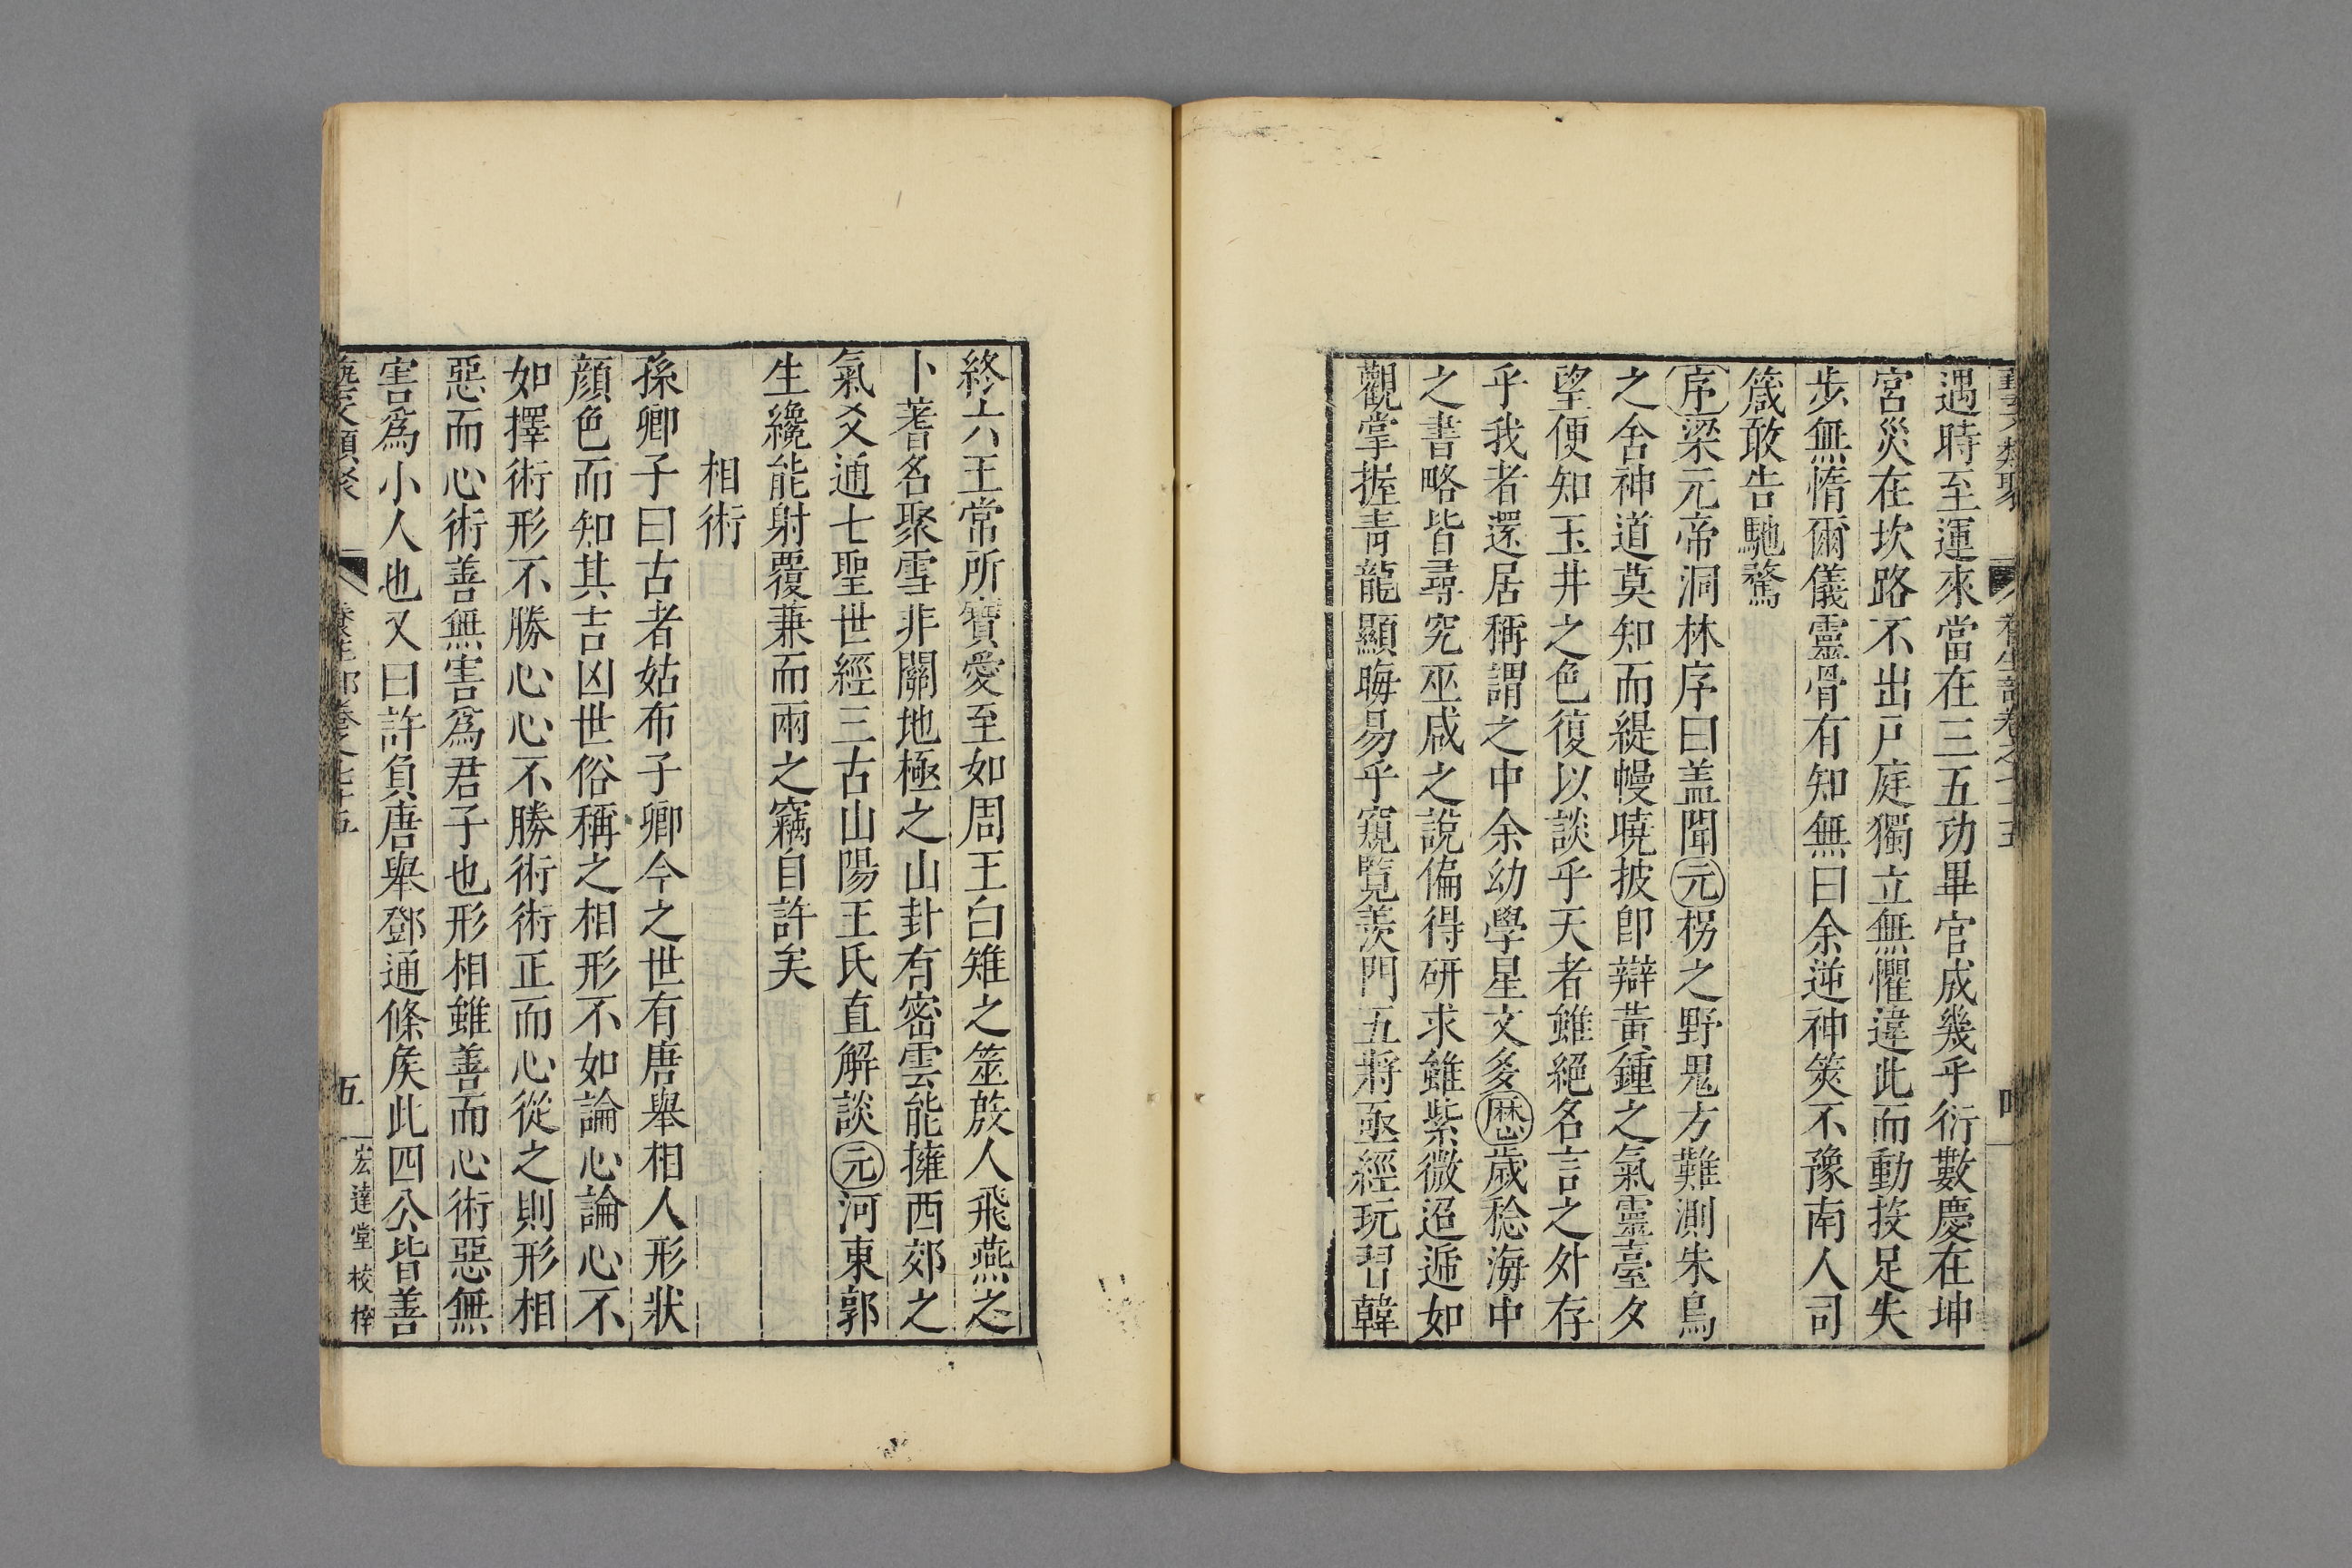 遇時至運來當在三五功畢官成幾乎衍數慶在坤
宮災在坎路不出戸庭獨立無懼違此而動投足失
步無惰爾儀靈骨有知無曰余逆神筴不豫南人司
箴敢告馳騖
序梁元帝洞林序曰盖聞元枴之野鬼方難測朱鳥
之舍神道莫知而緹幔曉披卽辯黃鍾之氣靈臺夕
望便知玉井之色復以談乎天者雖絕名言之外存
乎我者還居稱謂之中余幼學星文多歴歲稔海中
之書略皆尋究巫咸之說偏得研求雖紫微迢遞如
觀掌握青龍顯晦易乎窺覧羨門五將亟經玩習韓
終六王常所寶愛至如周王白雉之筮殷人飛燕之
卜蓍名聚雪非關地極之山卦有密雲能擁西郊之
氣爻通七聖世經三古山陽王氏直解談元河東郭
生纔能射覆兼而兩之竊自許矣
相術
孫卿子曰古者姑布子卿今之世有唐舉相人形狀
顔色而知其吉凶世俗稱之相形不如論心論心不
如擇術形不勝心心不勝術術正而心從之則形相
惡而心術善無害爲君子也形相雖善而心術惡無
害爲小人也又曰許負唐舉鄧通條矦此四公皆善
藝文類聚 養生部卷之七十五 五 宏達堂校梓